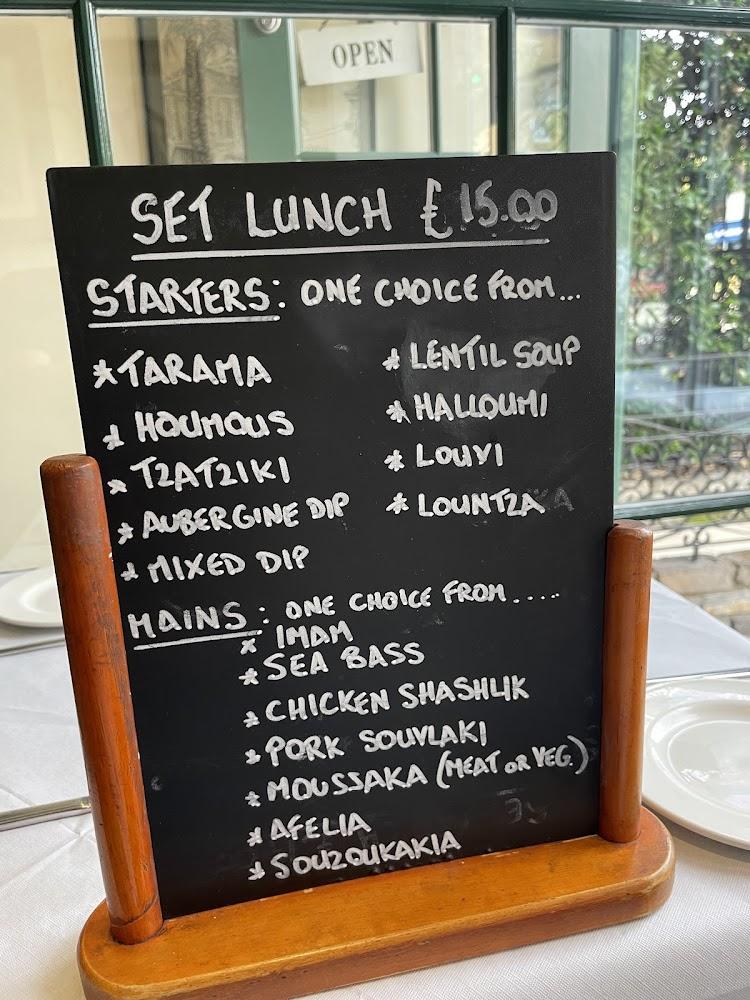 OPEN
SET LUNCH £15.00
STARTERS: ONE CHOICE FROM...
* TARAMA
* HOUMOUS
* TZATZIKI
* AUBERGINE DIP
* MIXED DIP
* LENTIL SOUP
* HALLOUMI
* LOUVI
* LOUNTZA
MAINS: ONE CHOICE FROM.....
* IMAM
* SEA BASS
* CHICKEN SHASHLIK
* PORK SOUVLAKI
* MOUSSAKA (MEAT OR VEG.)
* AFELIA
* SOUZOUKAKIA